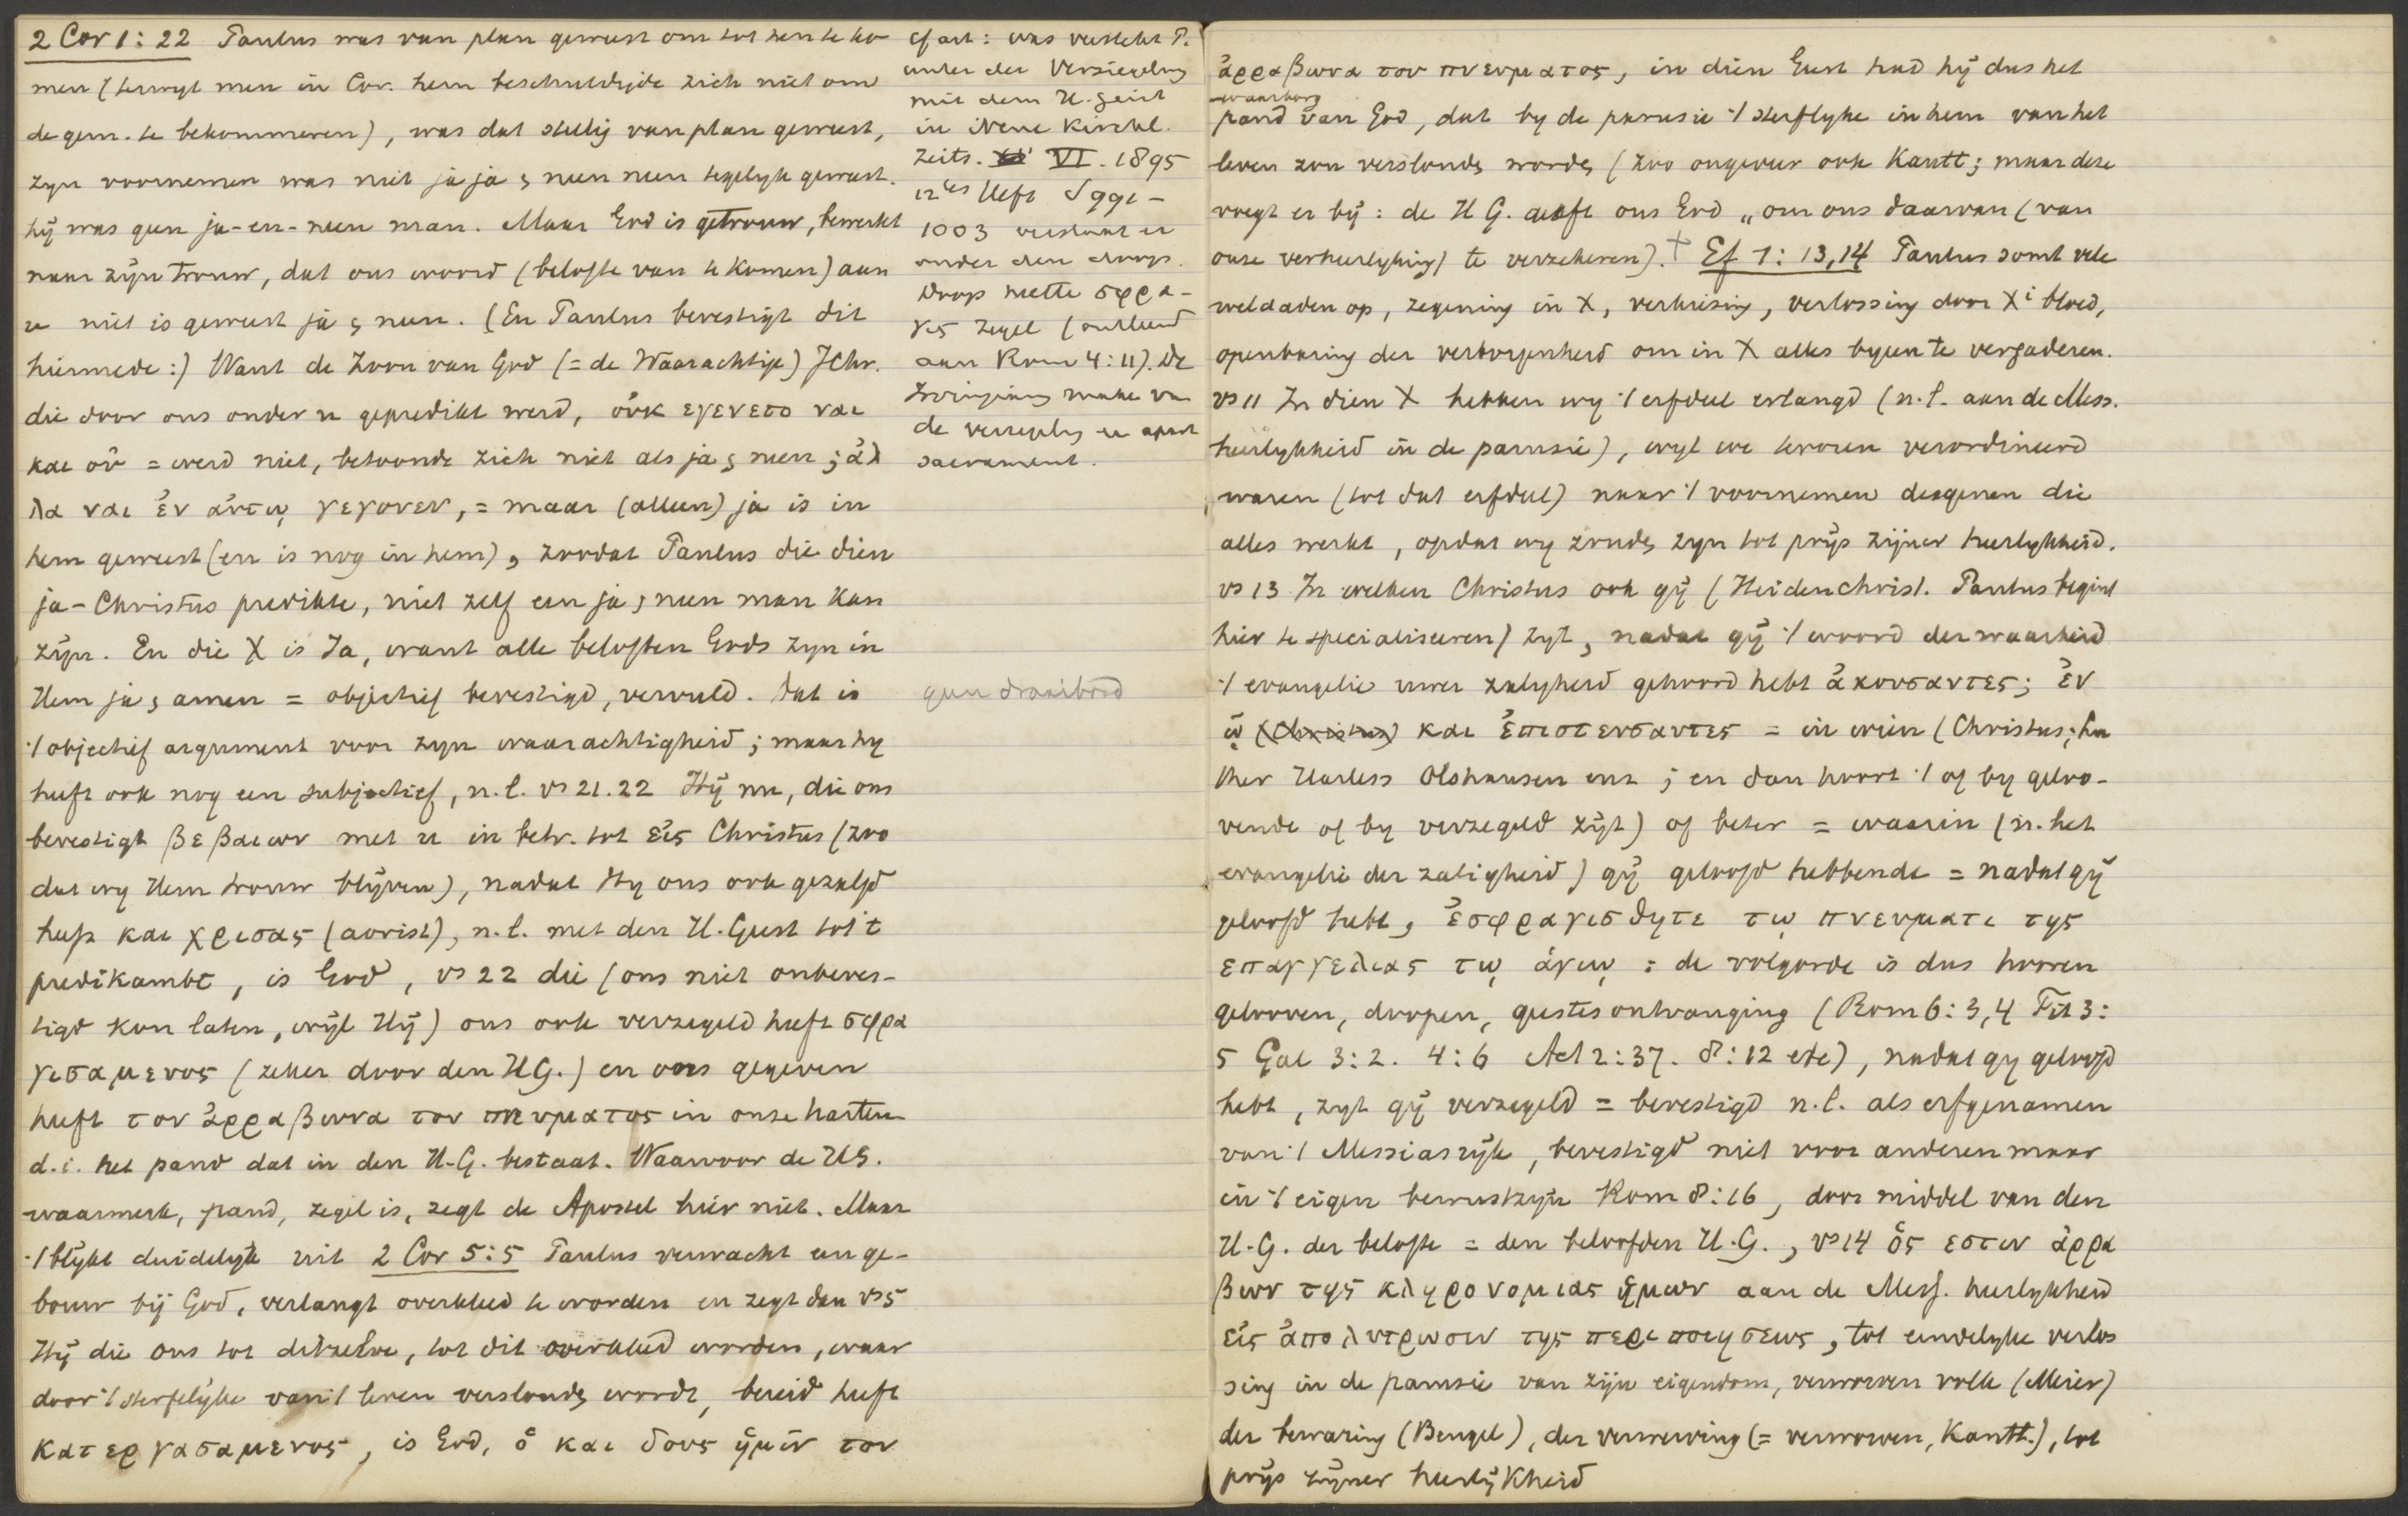 2 Cor 1:22 Paulus was van plan geweest om tot hen te ko
men (terwyl men in Cor. hem beschuldigde zich niet om
de gem. te bekommeren), was dat stellig van plan geweest,
zyn voornemen was niet ja ja & neen neen tegelyk geweest.
hij was geen ja-en-neen man. Maar God is getrouw, bewerkt
naar zijn trouw, dat ons woord (belofte van te komen) aan
u niet is geweest ja & neen. (En Paulus bevestigt dit
hiermede:) Want de Zoon van God (= de Waarachtige) JChr.
die door ons onder u gepredikt werd, οὐκ εγενετο ναι
και οὐ = werd niet, betoonde zich niet als ja & neen; ἀλ
λα ναι ἐν αὐτῳ γεγονεν, = maar (alleen) ja is in
hem geweest (en is nog in hem), zoodat Paulus die dien
ja-Christus predikte, niet zelf een ja & neen man kan
zijn. En die X is Ja, want alle beloften Gods zyn in
Hem ja & amen = objectief bevestigd, vervuld. Dat is
't objectief argument voor zyn waarachtigheid; maar hy
heeft ook nog een subjectief, n.l. vs 21.22 Hij nu, die ons
bevestigt βεβαιων met u in betr. tot εἰς Christus (zoo
dat wy Hem trouw blijven), nadat Hy ons ook gezalfd
heeft και χρισας (aorist), n.l. met den H. Geest tot 't
predikambt, is God, vs 22 die (ons niet onbeves-
tigd kon laten, wijl Hij) ons ook verzegeld heeft σφρα
γισαμενος (zeker door den HG.) en ons gegeven
heeft τον ἀρραβωνα του πνευματος in onze harten
d.i. het pand dat in den H.G. bestaat. Waarvoor de HG.
waarmerk, pand, zegel is, zegt de Apostel hier niet. Maar
't blijkt duidelijk uit 2 Cor 5:5 Paulus verwacht een ge-
bouw bij God, verlangt overkleed te worden en zegt dan vs 5
Hij die ons tot ditzelve, tot dit overkleed worden, waar
door 't sterfelijke van 't leven verslonden wordt, bereid heeft
κατεργασαμενος, is God, ὁ και δους ἡμῖν τον
cf art: was versteht P.
unter der Versiegelung
mit dem H. Geist
in Neue Kirchl.
Zeits. VI. 1895
12tes Heft S 991-
1003 verstaat er
onder den doop.
Doop heette σφρα-
γις zegel (ontleend
aan Rom 4:11). De
Zwinglianen make van
de verzegeling een apart
sacrament.
geen draaibord
ἀρραβωνα του πνευματος, in dien Geest had hij dus het
waarborg
pand van God, dat by de parusie 't sterflyke in hem van het
leven zou verslonden worden (zoo ongeveer ook Kantt; maar deze
voegt er bij: de H G. geeft ons God „om ons daarvan (van
onze verheerlyking) te verzekeren). † Ef 1:13,14 Paulus somt vele
weldaden op, zegening in X, verkiezing, verlossing door Xi bloed,
openbaring der verborgenheid om in X alles byeen te vergaderen.
vs 11 In dien X hebben wy 't erfdeel erlangd (n.l. aan de Mess.
heerlykheid in de parusie), wyl we tevoren verordineerd
waren (tot dat erfdeel) naar 't voornemen desgenen die
alles werkt, opdat wy zouden zyn tot prijs zijner heerlykheid.
vs 13 In welken Christus ook gij (Heidenchrist. Paulus begint
hier te specialiseeren) zyt, nadat gij 't woord der waarheid
't evangelie uwer zaligheid gehoord hebt ἀκουσαντες; ἐν
ᾡ (Christus) και ἐπιστευσαντες = in wien (Christus; Lu
ther Harless Olshausen enz; en dan hoort 't of by geloo-
vende of by verzegeld zijt) of beter = waarin (n. het
evangelie der zaligheid) gij geloofd hebbende = nadat gij
geloofd hebt, ἐσφραγισθητε τῳ πνευματι της
επαγγελιας τῳ ἁγιῳ: de volgorde is dus hooren
gelooven, doopen, geestesontvanging (Rom 6:3,4 Tit 3:
5 Gal 3:2. 4:6 Act 2:37. 8:12 etc), nadat gy geloofd
hebt, zyt gij verzegeld = bevestigd n.l. als erfgenamen
van 't Messiasrijk, bevestigd niet voor anderen maar
in 't eigen bewustzijn Rom 8:16, door middel van den
H.G. der belofte = den beloofden H.G., vs 14 ὁς εστιν ἀρρα
βων της κληρονομιας ἡμων aan de Mess. heerlykheid
εἰς ἀπολυτρωσιν της περιποιησεως, tot eindelyke verlos
sing in de parusie van zijn eigendom, verworven volk (Meier)
der bewaring (Bengel), der verwerving (= verworven, Kantt.), tot
prijs zijner heerlijkheid